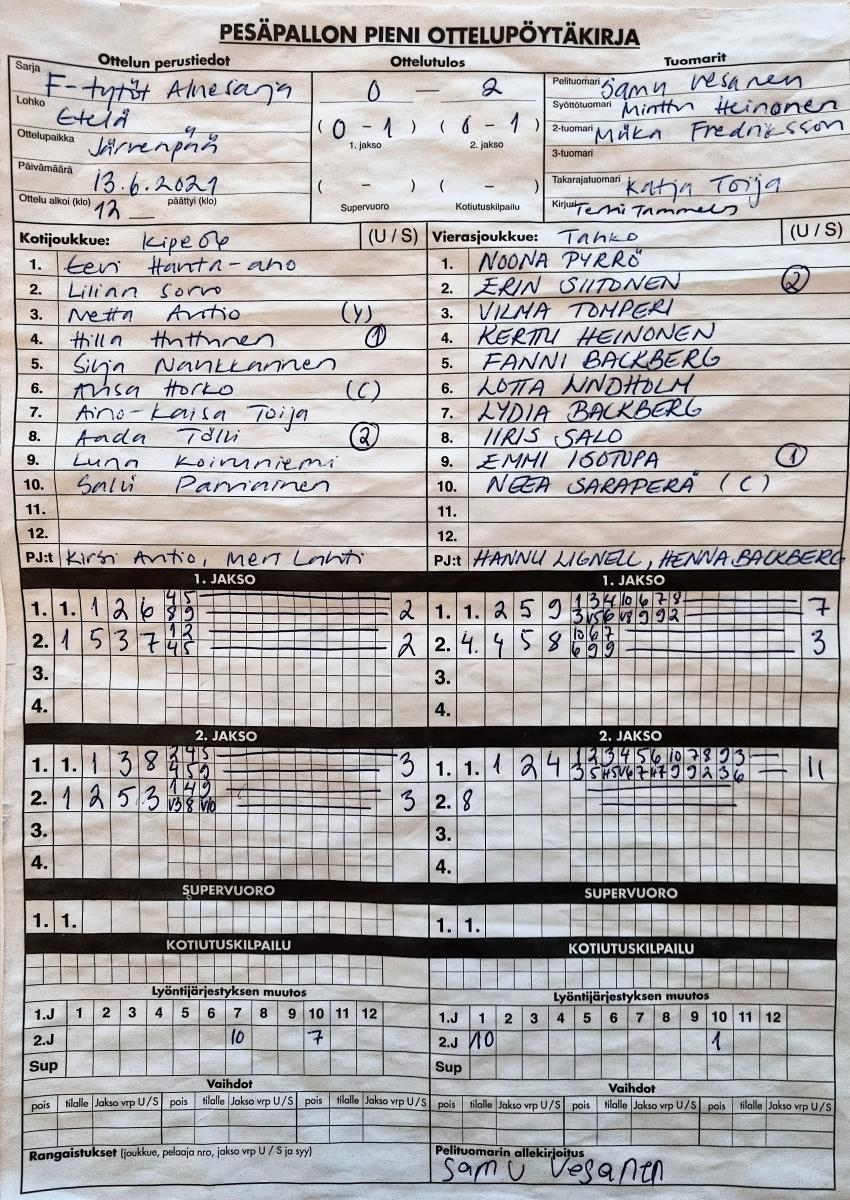 PESÄPALLON PIENI OTTELUPÖYTÄKIRJA
Ottelun perustiedot
Ottelutulos
Tuomarit
Sarja F-tytöt Aluesarja
Lohko Etelä
Ottelupaikka Järvenpää
Päivämäärä 13.6.2021
Ottelu alkoi (klo) 12 päättyi (klo)
0 — 2
(0 - 1) (6 - 1)
1. jakso 2. jakso
( - ) ( - )
Supervuoro Kotiutuskilpailu
Pelituomari Samu Vesanen
Syöttötuomari Minttu Heinonen
2-tuomari Miika Fredriksson
3-tuomari
Takarajatuomari Katja Toija
Kirjuri
Kotijoukkue: Kipe (U / S)
1. Eevi Hanta-aho
2. Lilian Sorvo
3. Netta Antio (V)
4. Hilla Huttunen 1
5. Silja Nankkarinen
6. Ansa Horko (C)
7. Aino-Kaisa Toija
8. Aada Tölli 2
9. Luna Koivuniemi
10. Salvi Parviainen
11.
12.
PJ:t Kirsi Antio, Meri Lahti
Vierasjoukkue: Tahko (U / S)
1. NOONA PYRRÖ
2. ERIN SIITONEN 2
3. VILMA TOMPERI
4. KERTTU HEINONEN
5. FANNI BACKBERG
6. LOTTA LINDHOLM
7. LYDIA BACKBERG
8. IIRIS SALO
9. EMMI ISOTUPA 1
10. NEEA SARAPERÄ (C)
11.
12.
PJ:t HANNU LIGNELL, HENNA BACKBERG
1. JAKSO
1. 1. 1 2 6 4 5 2
8 9
2. 1 5 3 7 1 2 2
4 5
3.
4.
1. JAKSO
1. 1. 2 5 9 1 3 4 10 6 7 8 7
3 V5 6 V8 9 9 2
2. 4. 4 5 8 10 6 7 3
6 9 9
3.
4.
2. JAKSO
1. 1. 1 3 8 2 4 5 3
4 5 9
2. 1 2 5 3 1 4 9 3
V3 8 V10
3.
4.
2. JAKSO
1. 1. 1 2 4 1 2 3 4 5 6 10 7 8 9 3 11
2. 8
3.
4.
SUPERVUORO
1. 1.
SUPERVUORO
1. 1.
KOTIUTUSKILPAILU
KOTIUTUSKILPAILU
Lyöntijärjestyksen muutos
1.J 1 2 3 4 5 6 7 8 9 10 11 12
2.J 10 7
Sup
Lyöntijärjestyksen muutos
1.J 1 2 3 4 5 6 7 8 9 10 11 12
2.J 10 1
Sup
Vaihdot
pois tilalle Jakso vrp U / S pois tilalle Jakso vrp U / S pois tilalle Jakso vrp U / S
Vaihdot
pois tilalle Jakso vrp U / S pois tilalle Jakso vrp U / S pois tilalle Jakso vrp U / S
Rangaistukset (joukkue, pelaaja nro, jakso vrp U / S ja syy)
Pelituomarin allekirjoitus
Samu Vesanen